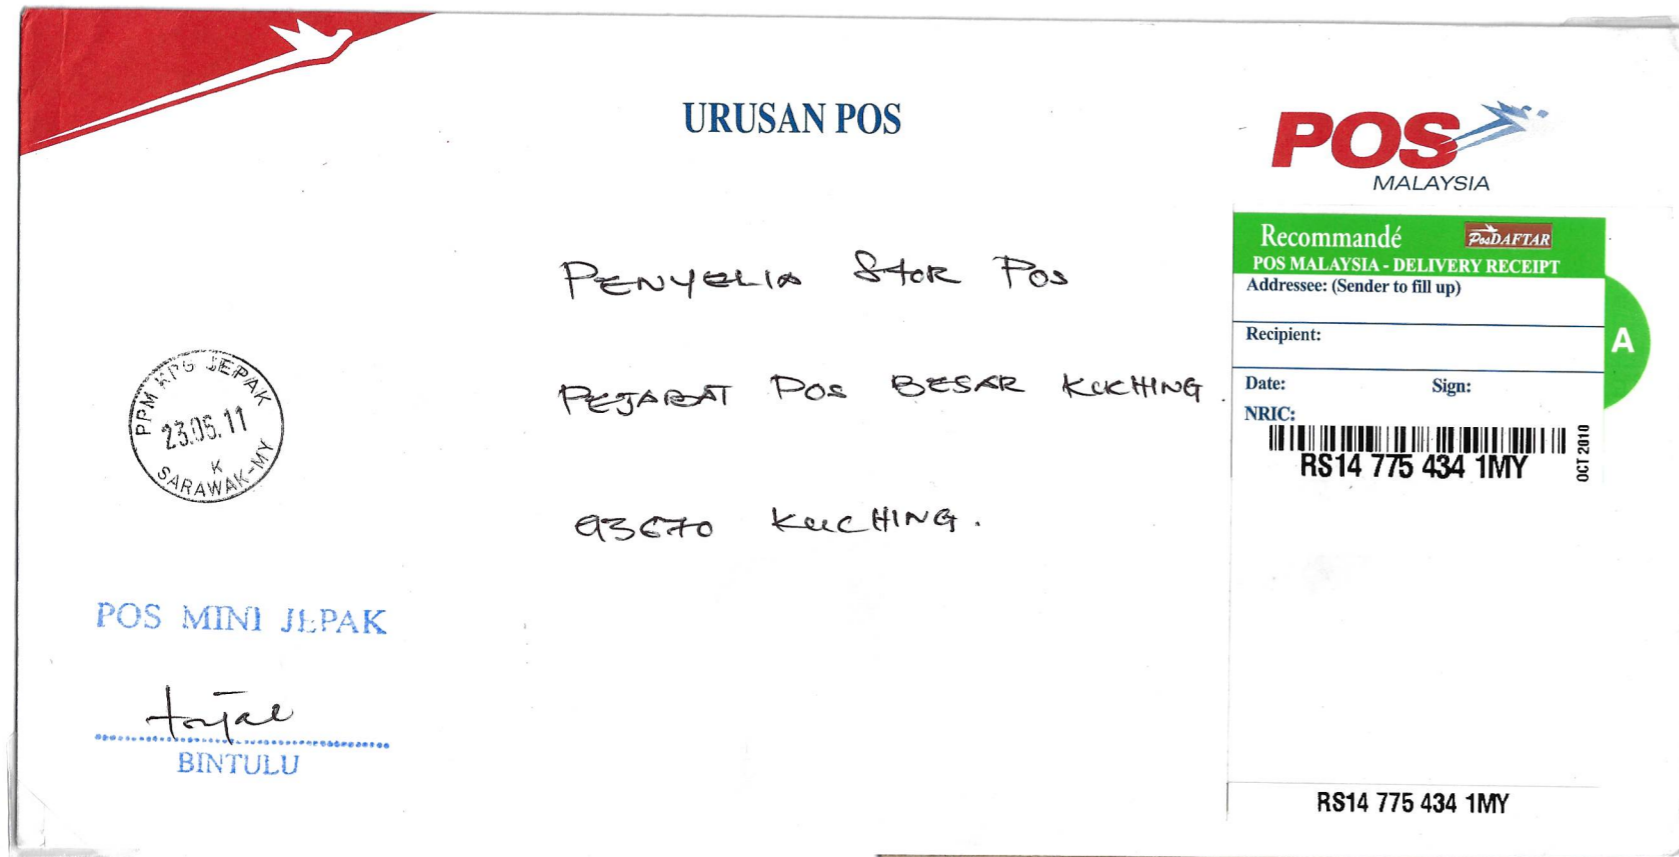 URUSAN POS
POS
MALAYSIA
Recommandé
PosDAFTAR
POS MALAYSIA - DELIVERY RECEIPT
Addressee: (Sender to fill up)
Recipient:
A
Date: Sign:
NRIC:
RS14 775 434 1MY
OCT 2010
PENYELIA STOR POS
PEJABAT POS BESAR KUCHING.
93670 KUCHING.
PPM KPG JEPAK
23.05.11
K
SARAWAK-MY
POS MINI JEPAK
BINTULU
RS14 775 434 1MY